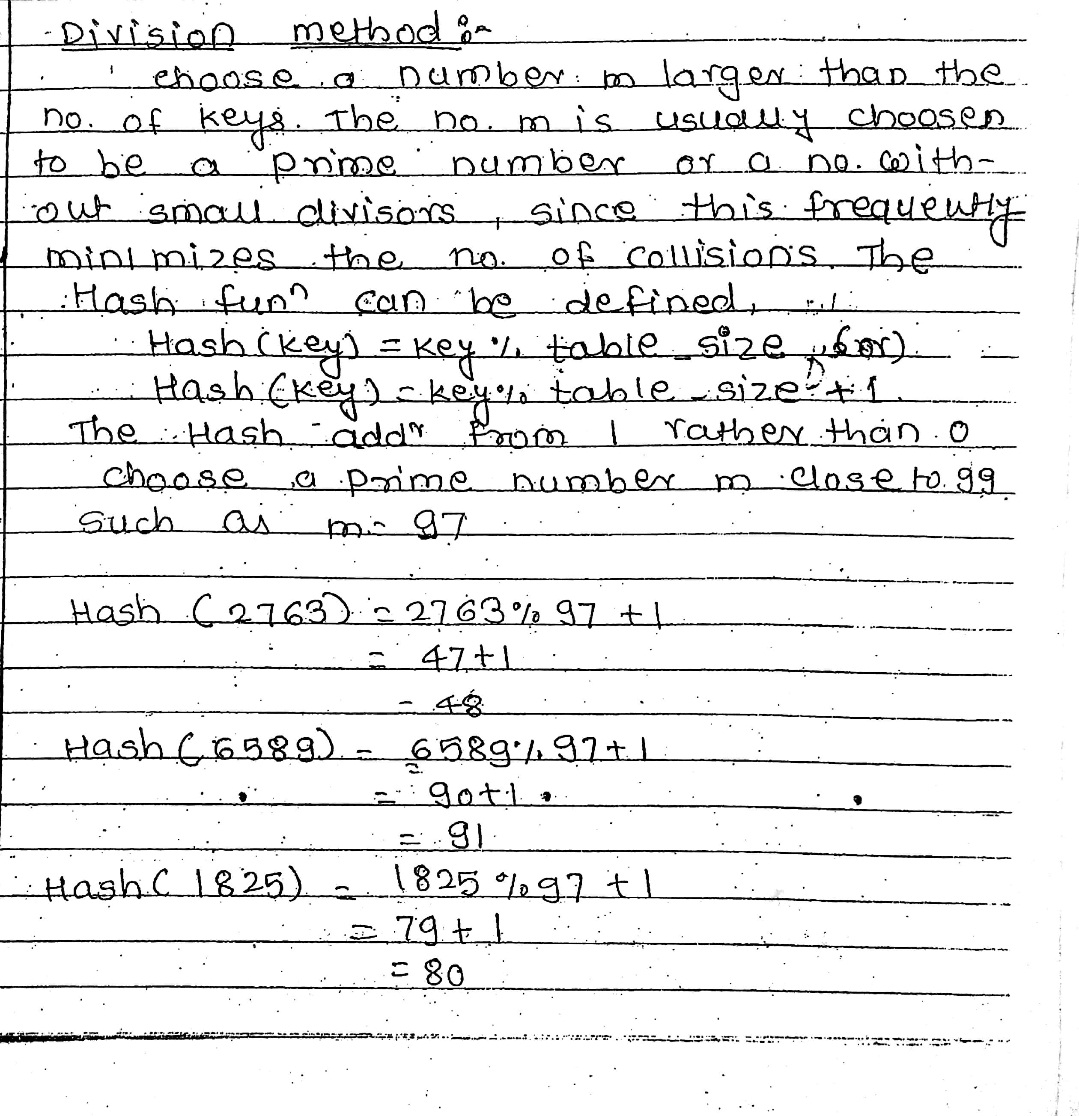 Division method :-
choose a number m larger than the
no. of keys. The no. m is usually choosen
to be a prime number or a no. with-
out small divisors, since this frequently
minimizes the no. of collisions. The
Hash funⁿ can be defined,
Hash (key) = key % table_size (or)
Hash (key) = key % table_size + 1.
The Hash addʳ from 1 rather than 0
choose a prime number m close to 99
such as m = 97
Hash (2763) = 2763 % 97 + 1
= 47+1
= 48
Hash (6589) = 6589 % 97+1
= 90+1
= 91
Hash ( 1825) = 1825 % 97 + 1
= 79 + 1
= 80